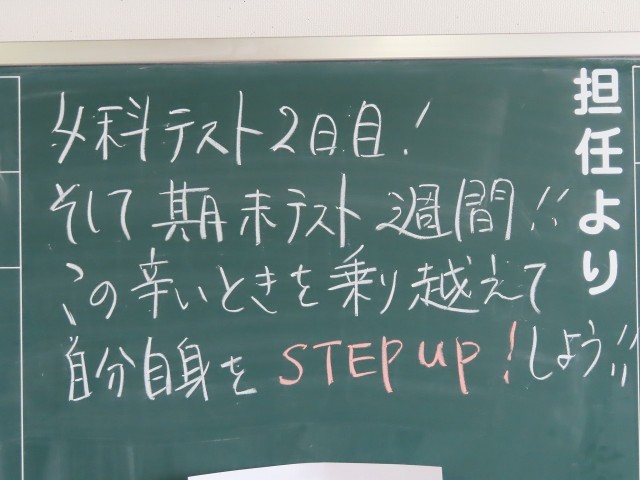 担任より
4科テスト2日目!
そして期末テスト週間!!
この辛いときを乗り越えて
自分自身をSTEP UP!しよう!!